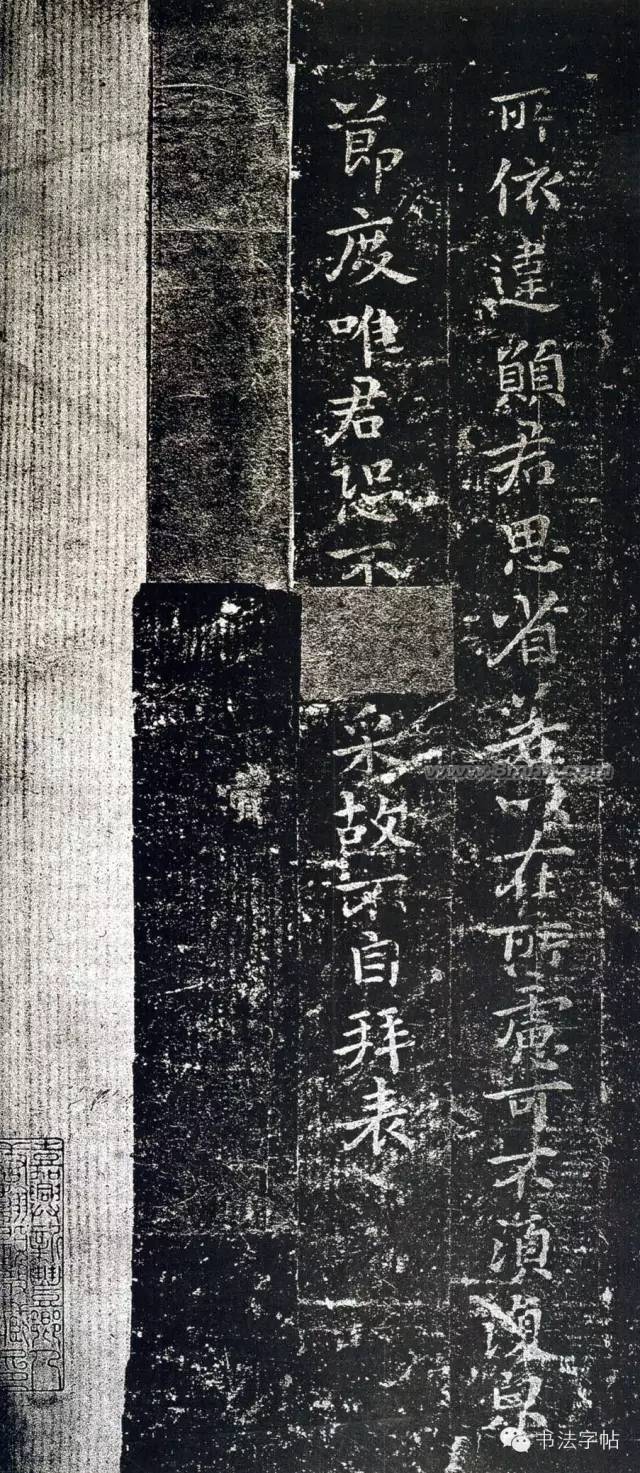 所依違願君思省若以在所慮可不須復皃
節度唯君恐不采故不自拜表
书法字帖